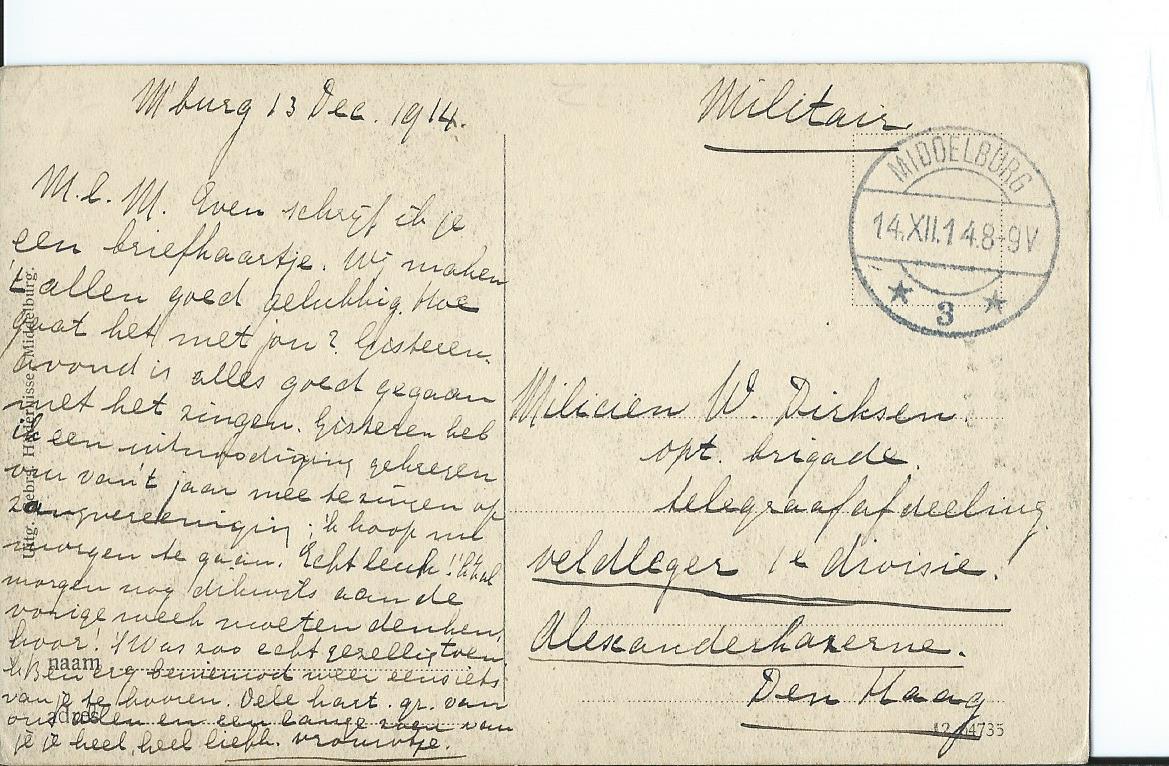 M'burg 13 Dec. 1914.
M. l. M. Even schrijf ik je
een briefkaartje. Wij maken
't allen goed gelukkig. Hoe
gaat het met jou? Gisteren-
avond is alles goed gegaan
met het zingen. Gisteren heb
ik een uitnoodiging gekregen
om van 't jaar mee te zingen op
zangvereeniging; 'k hoop nu
morgen te gaan. Echt leuk! 'k Zal
morgen nog dikwils aan de
vorige week moeten denken,
hoor! 't Was zoo echt gezellig toen.
'k Ben erg benieuwd weer eens iets
van je te hooren. Vele hart. gr. van
ons allen en een lange zoen van
je je heel, heel liefh. vrouwtje.
naam
adres
Uitg. Gebrs. Middelburg.
Militair
MIDDELBURG
14.XII.14.8-9V
3
Milicien W. Dirksen
opt. brigade.
telegraafafdeeling
veldleger 1e divisie.
Alexanderkazerne.
Den Haag
12 64735